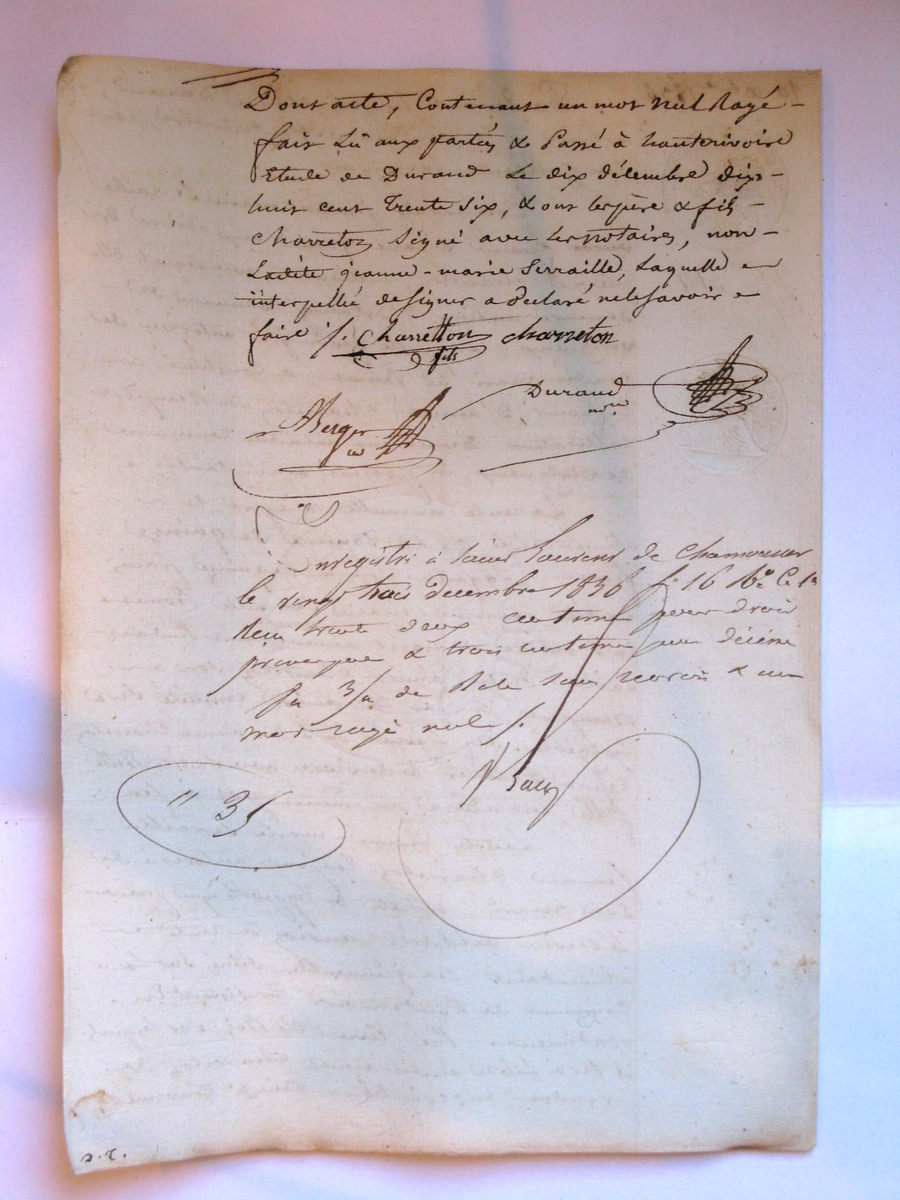 Dont acte, Contenant un mot nul Rayé -
fait Lû aux parties & Passé à hauterivoire
Etude de Durand Le dix décembre dix-
huit cent Trente Six, & ont les père & fils -
Charreton Signé avec les notaires, non -
Ladite jeanne-marie Serraille, Laquelle -
interpellée de Signer a déclaré ne le Savoir
faire /. Charretton charreton
fils
Durand
nre
ABerger
Enregistré à Saint Laurent de Chamousset
le vingt trois decembre 1836 f. 16 Vo C
trente deux centimes pour droit
& trois centimes pour décime
de Role Sans renvois & un
mot rayé nul /.
" 35